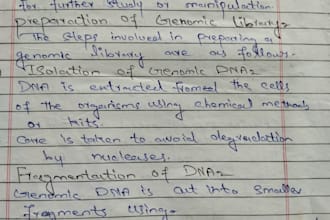 for further study or manipulation
preparation of Genomic library-
The steps involved in preparing a
genomic library are as follows-
Isolation of Genomic DNA-
DNA is extracted from the cells
of the organisms using chemical methods
or kits.
Care is taken to avoid degradation
by nucleases.
Fragmentation of DNA-
Genomic DNA is cut into smaller
fragments using-